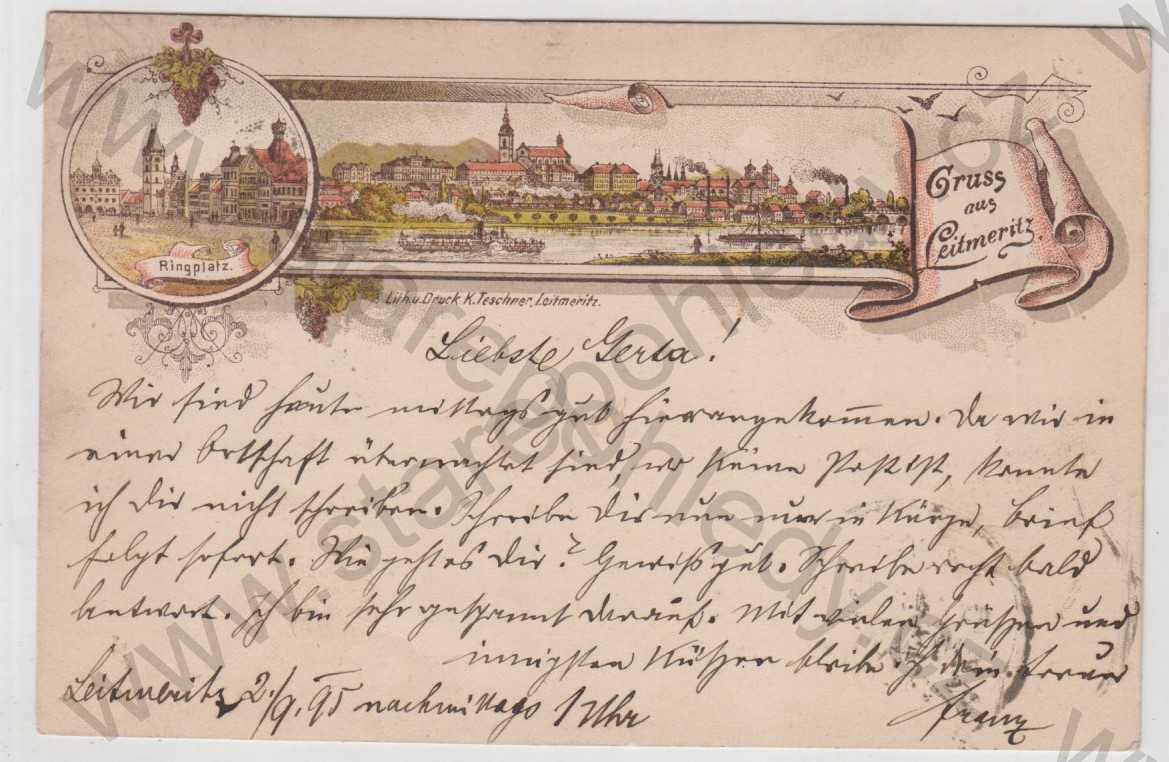 Ringplatz.
Gruss
aus
Leitmeritz.
Lith. u. Druck K. Teschner, Leitmeritz.
Liebste Gerta!
Wir sind heute mittags gut hier angekommen. Da wir in
einer Ortschaft übernachtet sind, wo keine Post ist, konnte
ich Dir nicht schreiben. Schreibe Dir nun nur in Kürze, Brief
folgt sofort. Wie geht es Dir? Gewiß gut. Schreibe recht bald
Antwort. Ich bin sehr gespannt darauf. Mit vielen Grüßen und
innigsten Küssen bleibe ich Dein treuer
Leitmeritz 2./9. 95 nachmittags 1 Uhr
Franz
www.starepohledy.cz